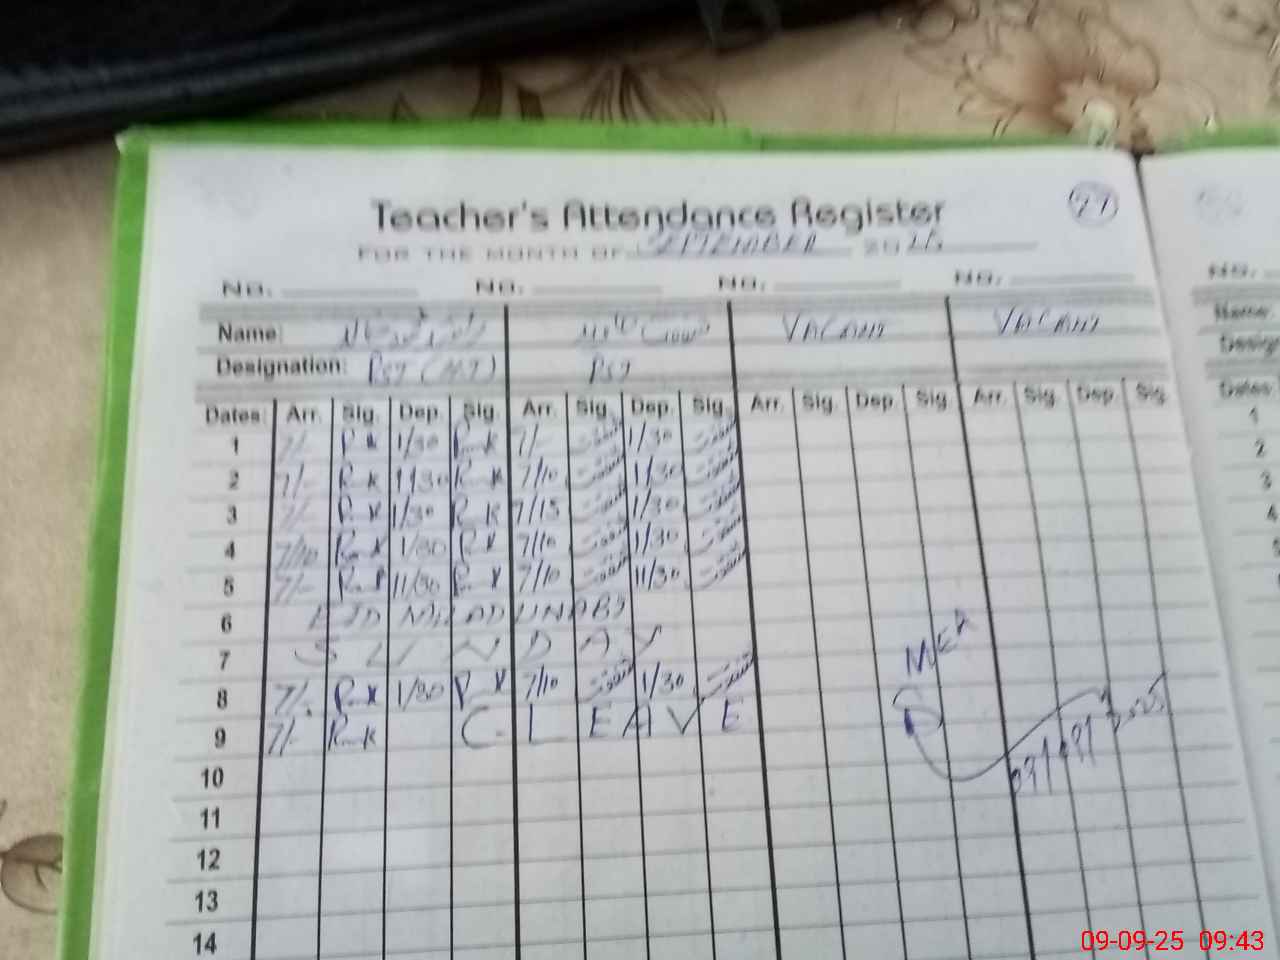 Teacher's Attendance Register
FOR THE MONTH OF SEPTEMBER 2025
NO. NO. NO. NO.
Name: VACANT VACANT
Designation: PST (H.T) PST
Dates Arr. Sig. Dep. Sig. Arr. Sig. Dep. Sig. Arr. Sig. Dep. Sig. Arr. Sig. Dep. Sig.
1 7/- R.K 1/30 R.K 7/- 1/30
2 7/- R.K 1/30 R.K 7/10 1/30
3 7/- R.K 1/30 R.K 7/15 1/30
4 7/10 R.K 1/30 R.K 7/10 1/30
5 7/- R.K 11/30 R.K 7/10 11/30
6 EID MILAD UNABI
7 SUNDAY
8 7/- R.K 1/30 R.K 7/10 1/30
9 7/- R.K C-LEAVE
MEA
09/09/2025
10
11
12
13
14
NO.
Name:
Dates
1
2
3
4
09-09-25 09:43